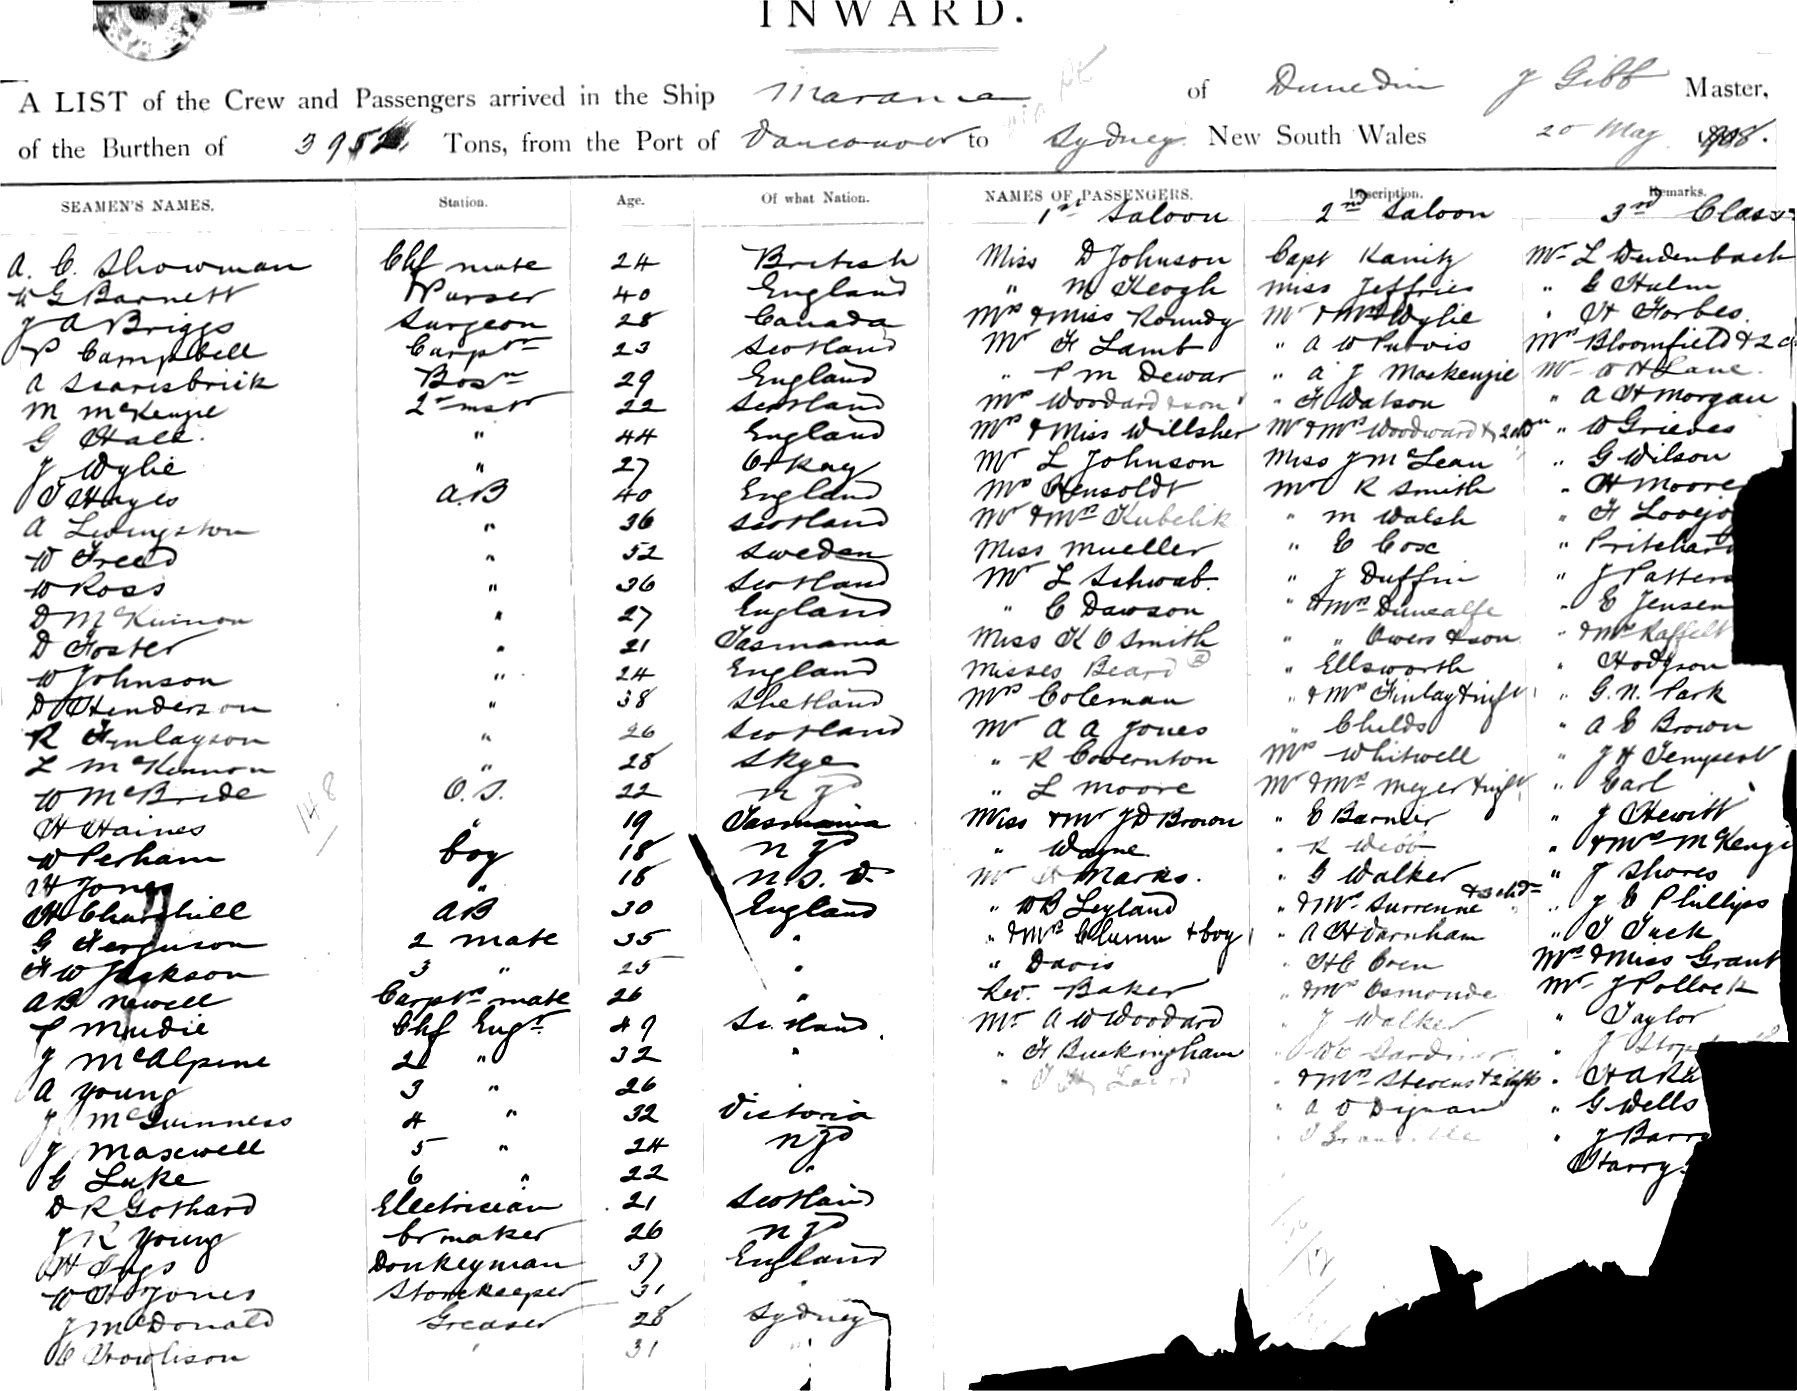 INWARD.
A LIST of the Crew and Passengers arrived in the Ship Marama of Dunedin J Gibb Master,
of the Burthen of Tons, from the Port of Vancouver to Sydney New South Wales 20 May 1908.
SEAMEN'S NAMES. Station. Age. Of what Nation. NAMES OF PASSENGERS. Description. Remarks.
1st Saloon 2nd Saloon 3rd Class
A. C. Showman Chf mate 24 British Miss D Johnson Capt Kanitz Mr L Deidenbach
W G Barnett Purser 40 England " M Keogh Miss Jeffries " G Hulm
J A Briggs Surgeon 28 Canada Mrs & Miss Roundy Mr & Mrs Wylie " H Forbes.
P Campbell Carptr 23 Scotland Mr H Lamb " A W Purvis Mrs Bloomfield & 2
A Scaresbrick Bosn 29 England " P M Dewar " A J Mackenzie Mr W H Lane.
M McKenzie 22 Scotland Mrs Woodard & son " H Watson " A H Morgan
G Hall. " 44 England Mrs & Miss Willsher Mr & Mrs Woodward & 2 " W Grieves
J Wylie " 27 Orkay Mr L Johnson Miss J McLean " G Wilson
T Hayes A.B 40 England Mrs Hensoldt Mr R Smith " H Moore
A Livingston " 36 Scotland Mr & Mrs Kubelik " M Walsh " H
W Freed " 52 Sweden Miss Mueller " E Cox " Pritchard
W Ross " 36 Scotland Mr L Schwab. " J Duffin " J
D McKinnon " 27 England " C Dawson " & Mrs Duncalfe " E Jensen
D Foster " 21 Tasmania Miss K O Smith " " Owers & son " & Mrs Raffelt
W Johnson " 24 England Misses Beard (2) " Ellsworth " Hodgson
D Henderson " 38 Shetland Mrs Coleman " & Mrs Finlay & inft " G. N. Park
R Finlayson " 26 Scotland Mr A A Jones " Childs " A E Brown
L McKinnon " 28 Skye " R Covernton Mrs Whitwell " J H Tempest
W McBride O. S. 22 N Zd " L Moore Mr & Mrs Meyer & inft " Earl
H Haines " 19 Tasmania Miss & Mr J D Brown " E Barnier " J Hewitt
W Perham boy 18 N Zd " Wayne " R Webb " & Mrs McKenzi
H Jones " 18 N. S. W. Mr H Marks. " G Walker " J Shores
H Churchill AB 30 England " W B Leyland " & Mrs Surrenne & 3 chdn " J E Phillips
G Ferguson 2 mate 35 " " & Mrs & boy " A H Varnham " T Tuck
H W Jackson 3 " 25 " " Davis " H C Mrs & Miss Grant
A B Newell Carptrs mate 26 " Rev. Baker " & Mrs Osmonde Mr J Pollock
P Mudie Chf Engr 49 Scotland Mr A W Woodard " J Walker " Taylor
J McAlpine 2 " 32 " " H Buckingham " W C Gardiner " J
A Young 3 " 26 " " " & Mrs Stevens & 2 infts "
J McGuinness 4 " 32 Victoria " A O Dignan " G Wells
J Maxwell 5 " 24 N Zd " " J Barr
G Luke 6 " 22 " Harry
D R Gothard Electrician 21 Scotland
J R Young Br maker 26 N Zd
H Donkeyman 37 England
W H Jones Storekeeper 31 "
J McDonald Greaser 28 Sydney
C " 31 "
148